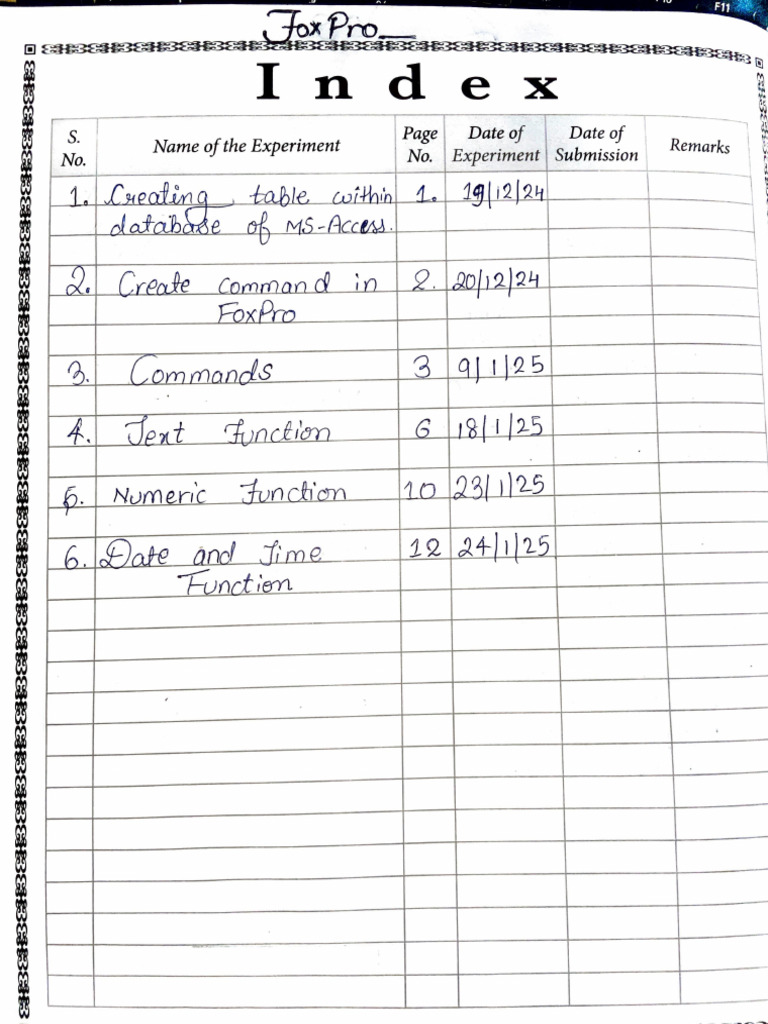 F11
FoxPro
Index
S. No. Name of the Experiment Page No. Date of Experiment Date of Submission Remarks
1. Creating table within 1. 19/12/24
database of MS-Access.
2. Create command in 2. 20/12/24
FoxPro
3. Commands 3 9/1/25
4. Text Function 6 18/1/25
5. Numeric Function 10 23/1/25
6. Date and Time 12 24/1/25
Function